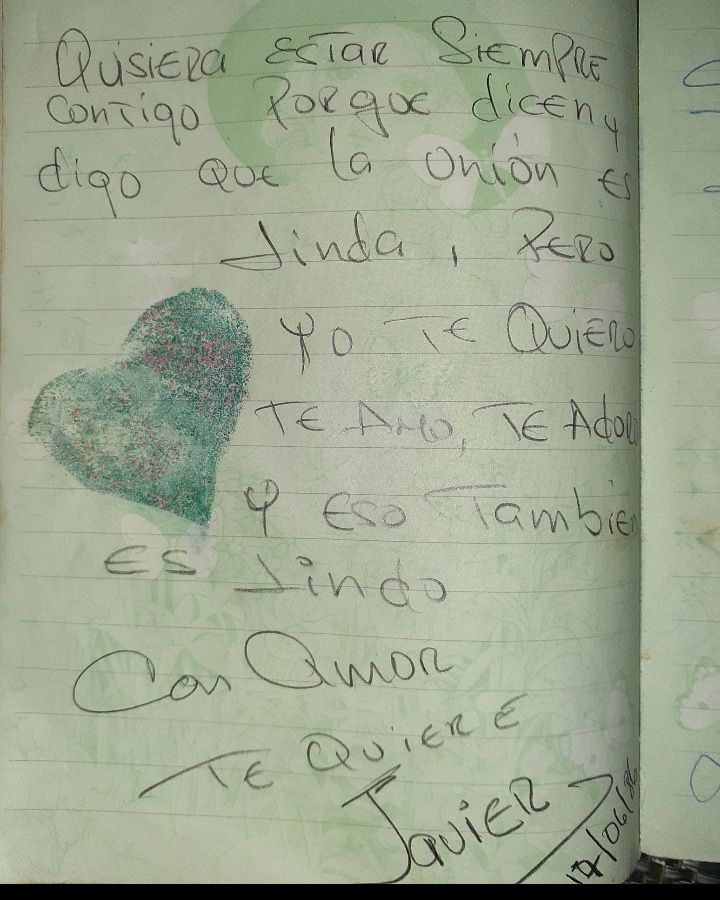 QUISIERA ESTAR SIEMPRE
CONTIGO PORQUE dicEN y
digo QUE la UNIÓN ES
LINDA, PERO
YO TE QUIERO
TE AMO, TE AdoRo
Y ESO También
ES LINDO
Con Amor
TE QUIERE
JAVIER
17/06/86